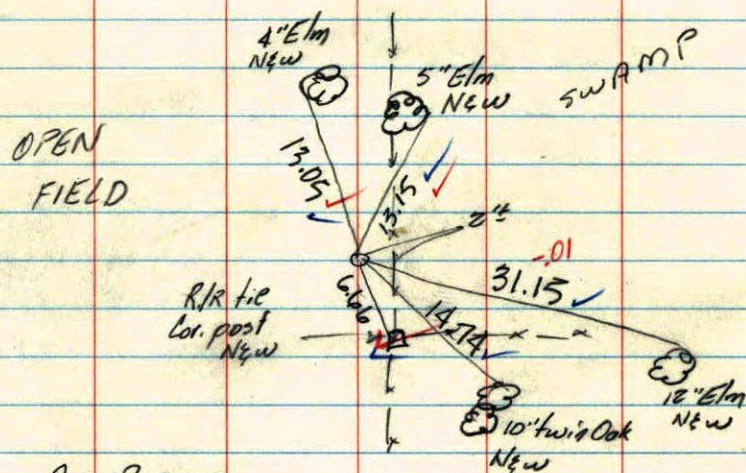 4" Elm
N&W
5" Elm
N&W
SWAMP
OPEN
FIELD
13.05
13.15
2'±
-.01
31.15
6.66
14.74
R/R tie
Cor. post
N&W
12" Elm
N&W
10" twin Oak
N&W